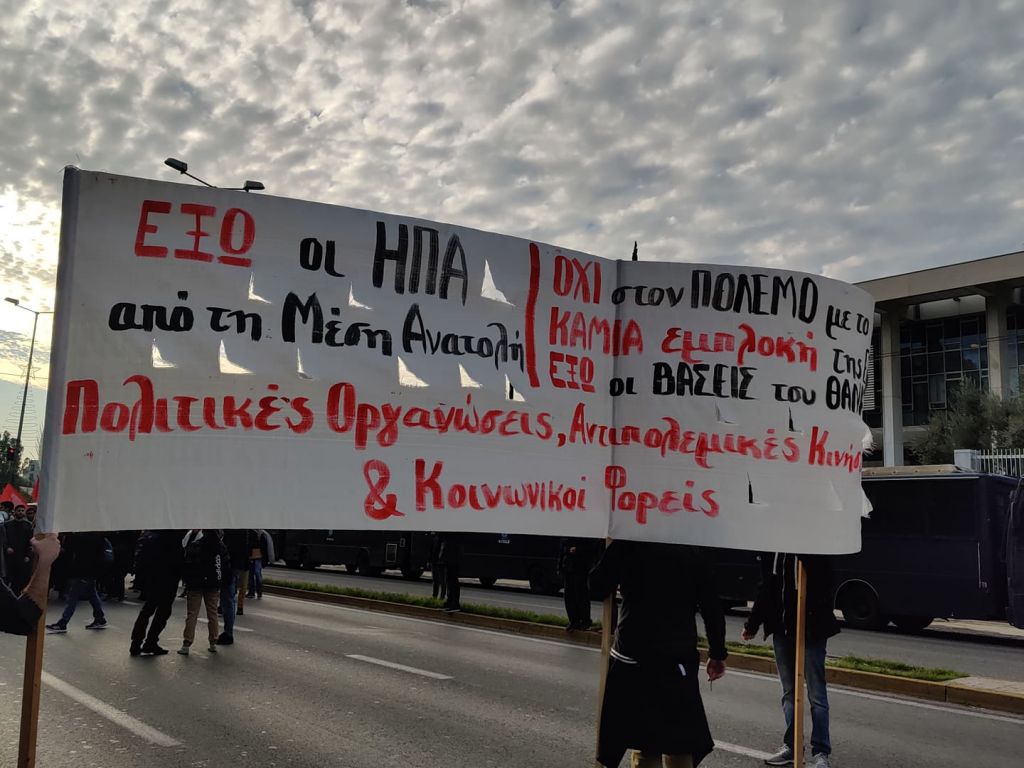 ΕΞΩ οι ΗΠΑ
από τη Μέση Ανατολή
ΟΧΙ στον ΠΟΛΕΜΟ με το
ΚΑΜΙΑ εμπλοκή της
ΕΞΩ οι ΒΑΣΕΙΣ του
Πολιτικές Οργανώσεις, Αντιπολεμικές
& Κοινωνικοί Φορείς